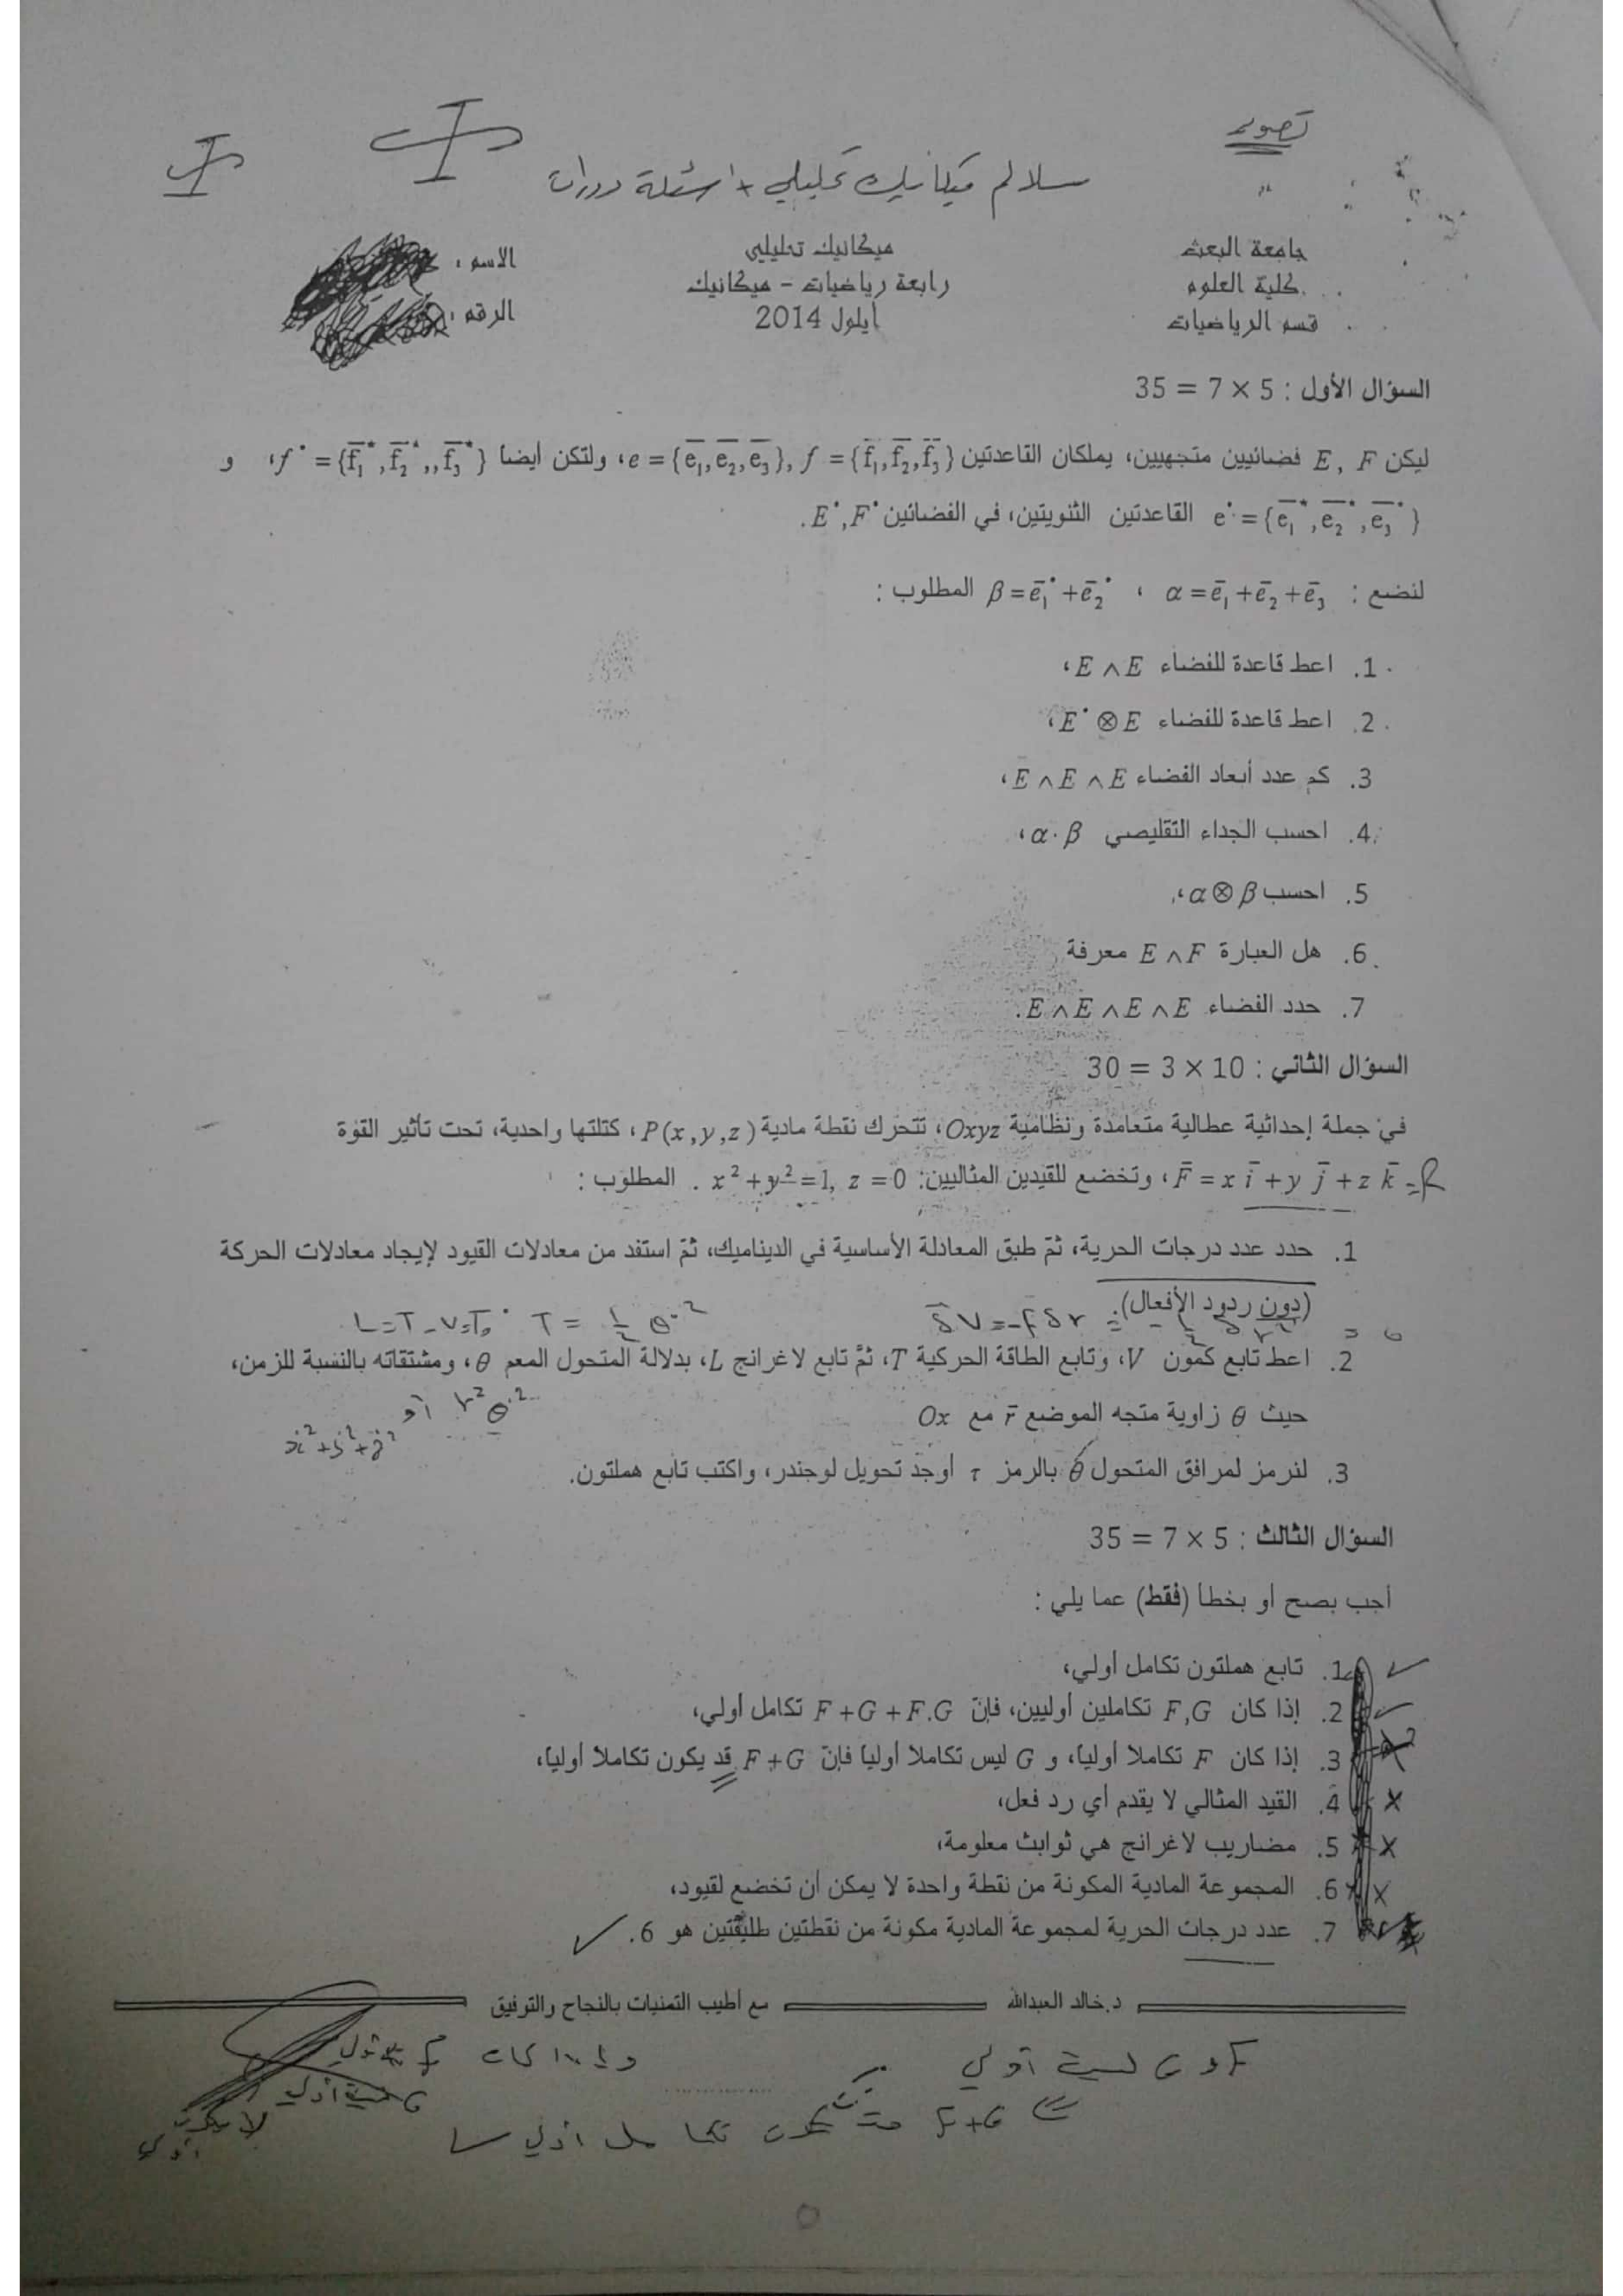 تصوير
سلالم ميكانيك تحليلي + اسئلة دورات
جامعة البعث
كلية العلوم
قسم الرياضيات
ميكانيك تحليلي
رابعة رياضيات - ميكانيك
أيلول 2014
الاسم :
الرقم :
السؤال الأول : 5 × 7 = 35
ليكن E, F فضائيين متجهيين، يملكان القاعدتين e = {e̅₁, e̅₂, e̅₃}, f = {f̅₁, f̅₂, f̅₃}، ولتكن أيضا f* = {f̅₁*, f̅₂*,, f̅₃*}، و
e* = {e̅₁*, e̅₂*, e̅₃*} القاعدتين الثنويتين، في الفضائين E*, F*.
لنضع : α = e̅₁ + e̅₂ + e̅₃ ، β = e̅₁* + e̅₂* المطلوب :
1. اعط قاعدة للفضاء E ∧ E،
2. اعط قاعدة للفضاء E* ⊗ E،
3. كم عدد أبعاد الفضاء E ∧ E ∧ E،
4. احسب الجداء التقليصي α · β،
5. احسب α ⊗ β،
6. هل العبارة E ∧ F معرفة
7. حدد الفضاء E ∧ E ∧ E ∧ E.
السؤال الثاني : 10 × 3 = 30
في جملة إحداثية عطالية متعامدة ونظامية Oxyz، تتحرك نقطة مادية P(x, y, z)، كتلتها واحدية، تحت تأثير القوة
F̅ = x i̅ + y j̅ + z k̅، وتخضع للقيدين المثاليين: x² + y² = 1, z = 0 . المطلوب :
1. حدد عدد درجات الحرية، ثمّ طبق المعادلة الأساسية في الديناميك، ثمّ استفد من معادلات القيود لإيجاد معادلات الحركة
(دون ردود الأفعال).
2. اعط تابع كمون V، وتابع الطاقة الحركية T، ثمّ تابع لاغرانج L، بدلالة المتحول المعمم θ، ومشتقاته بالنسبة للزمن،
حيث θ زاوية متجه الموضع r̅ مع Ox
ẋ² + ẏ² + ż² أو r² θ̇²
3. لنرمز لمرافق المتحول θ بالرمز τ أوجد تحويل لوجندر، واكتب تابع هملتون.
السؤال الثالث : 5 × 7 = 35
أجب بصح أو بخطأ (فقط) عما يلي :
1. تابع هملتون تكامل أولي، ✓
2. إذا كان F, G تكاملين أوليين، فإنّ F + G + F.G تكامل أولي، ✓
3. إذا كان F تكاملا أوليا، و G ليس تكاملا أوليا فإنّ F + G قد يكون تكاملا أوليا،
4. القيد المثالي لا يقدم أي رد فعل، ×
5. مضاريب لاغرانج هي ثوابث معلومة، ×
6. المجموعة المادية المكونة من نقطة واحدة لا يمكن أن تخضع لقيود، ×
7. عدد درجات الحرية لمجموعة المادية مكونة من نقطتين طليقتين هو 6. ✓
د.خالد العبدالله
مع أطيب التمنيات بالنجاح والتوفيق